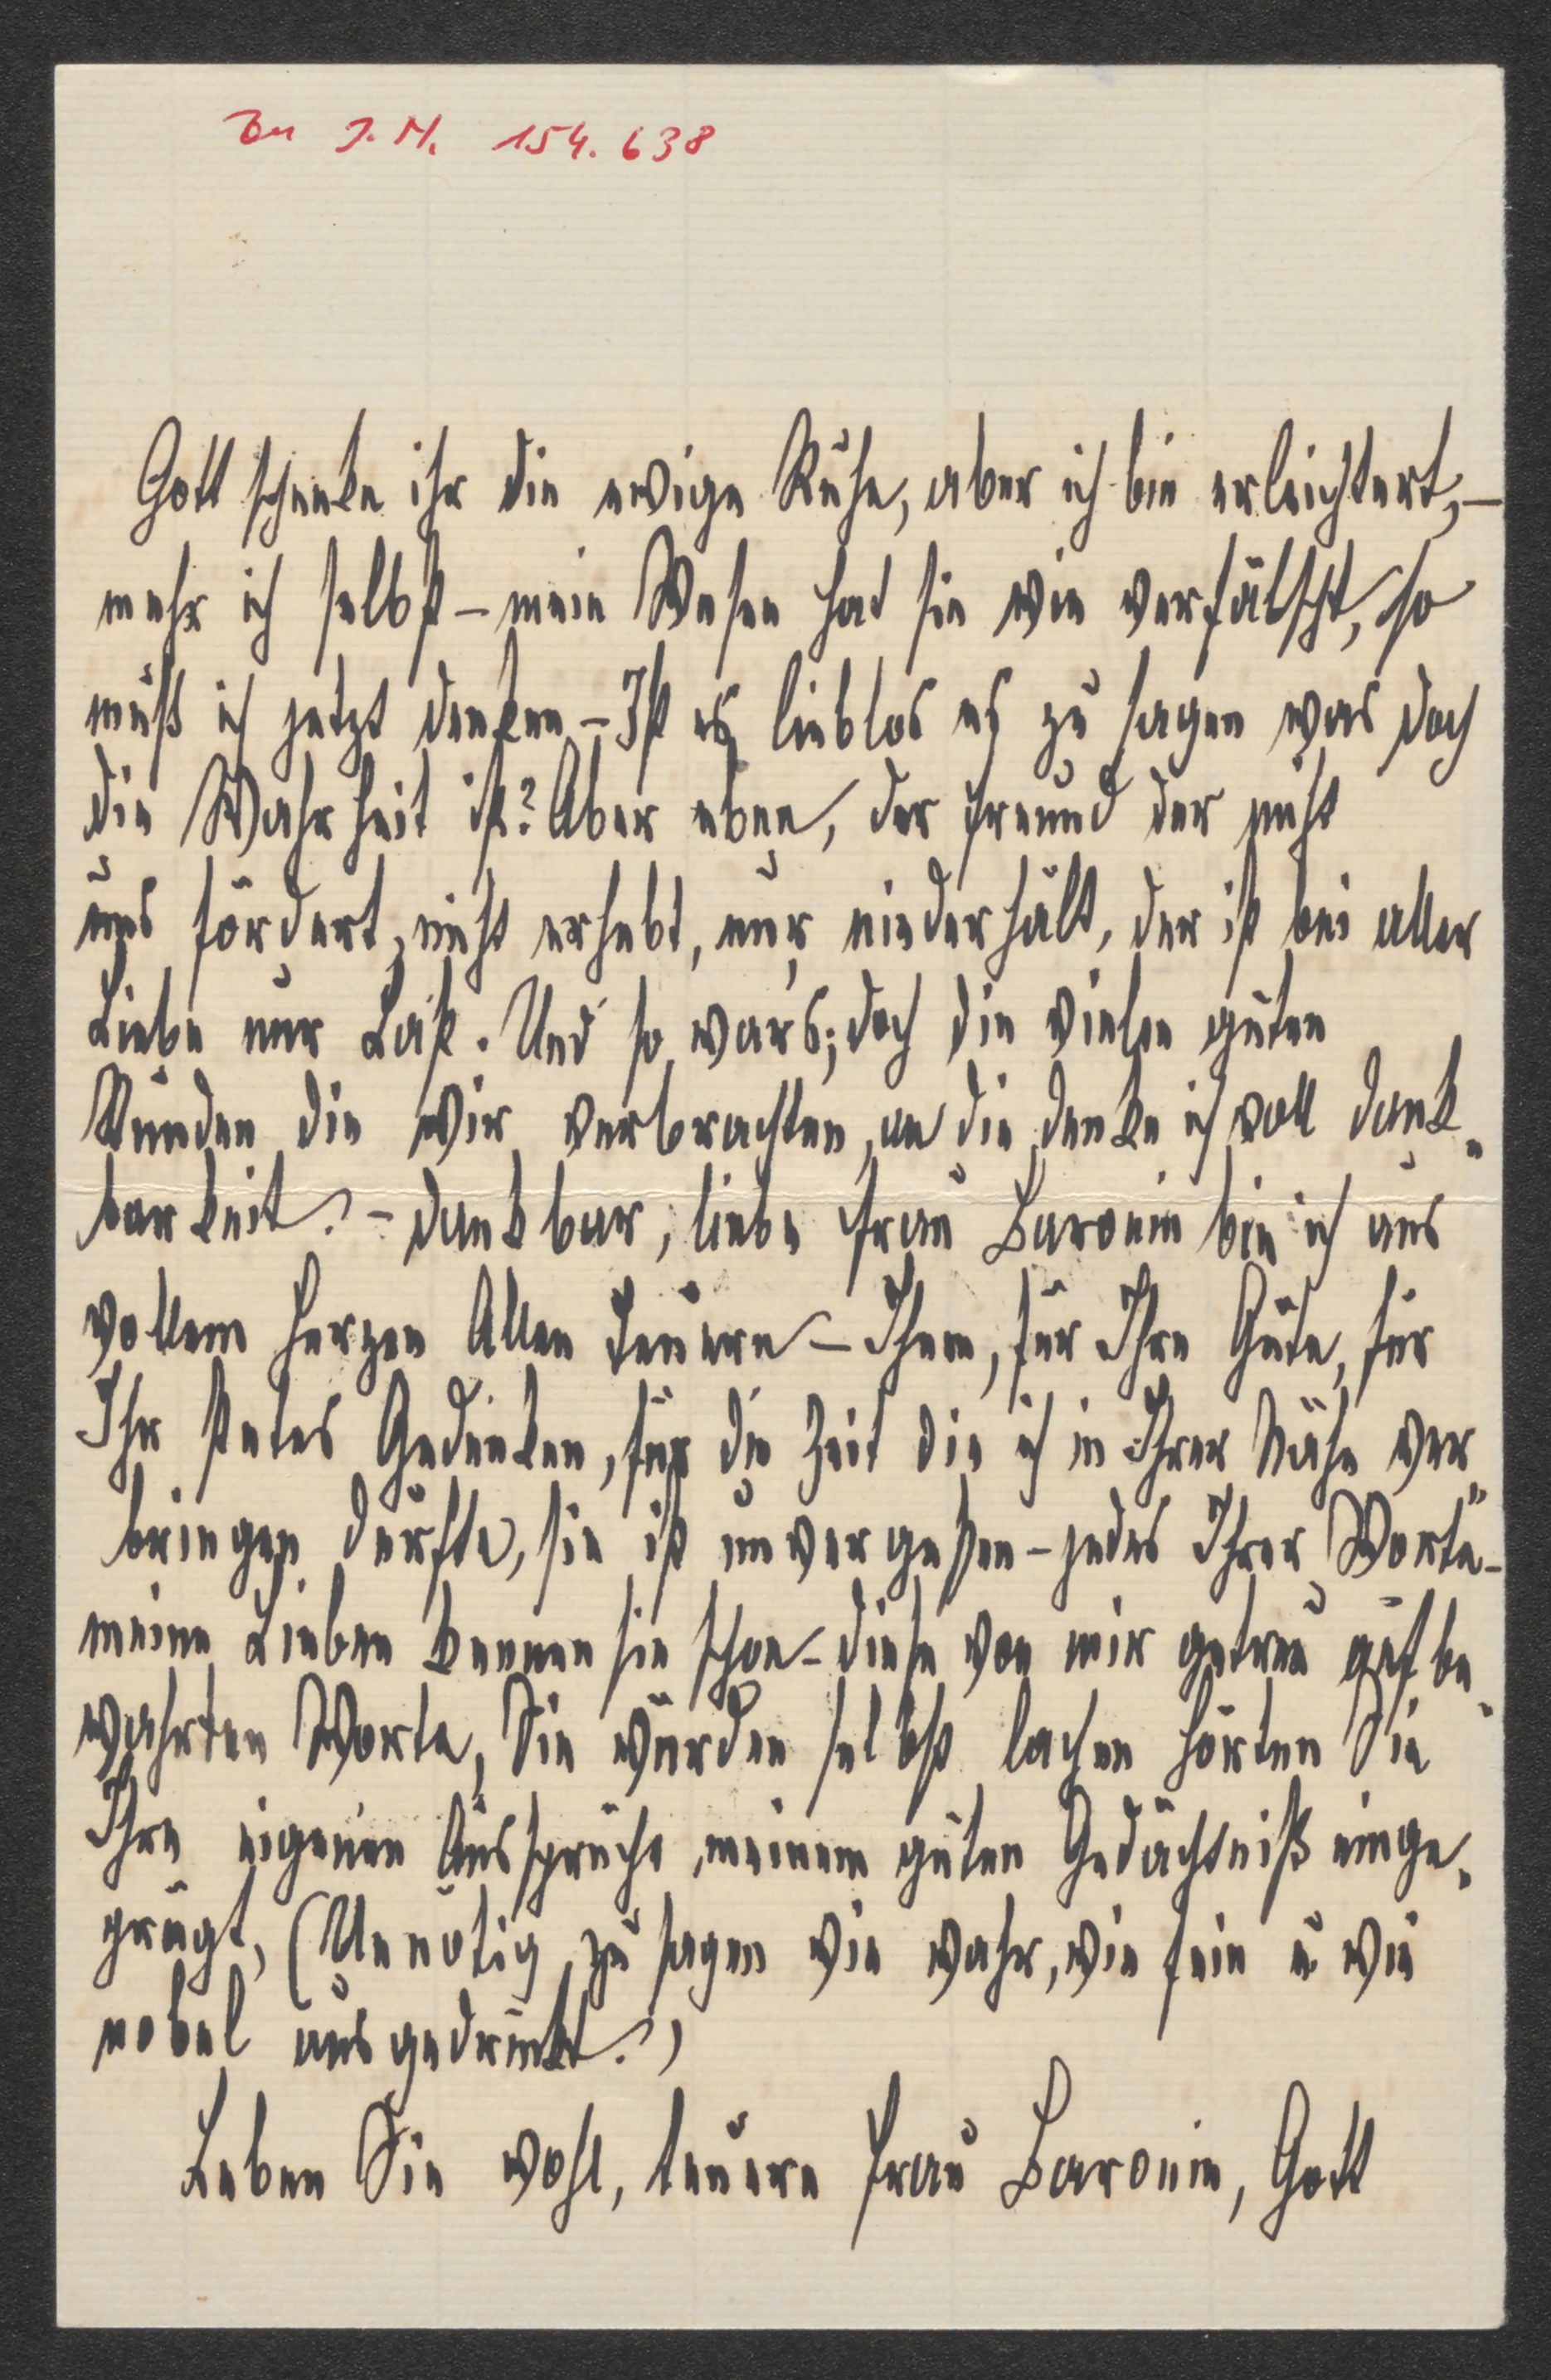 Zu J. N. 154.638
Gott schenke ihr die ewige Ruhe, aber ich bin erleichtert, –
mehr ich selbst – mein Wesen hat sie wie verfälscht, so
muß ich jetzt denken – Ist es lieblos es zu sagen was doch
die Wahrheit ist? Aber eben, der Freund der nicht
uns fördert, nicht erhebt, nur niederhält, der ist bei aller
Liebe nur Last. Und so war's; doch die vielen guten
Stunden die wir verbrachten, an die denke ich voll Dank-
barkeit. – Dankbar, liebe Frau Baronin bin ich aus
vollem Herzen Allen Teuern – Ihnen, für Ihre Güte, für
Ihr stetes Gedenken, für die Zeit die ich in Ihrer Nähe ver-
bringen durfte, sie ist unvergeßen – jedes Ihrer Worte –
meine Lieben kennen sie schon – diese von mir getreu aufbe-
wahrten Worte, Sie würden selbst lachen hörten Sie
Ihre eigenen Aussprüche, meinem guten Gedächtniß einge-
prägt, (Unnötig zu sagen wie wahr, wie fein u. wie
nobel ausgedrückt.)
Leben Sie wohl, teuere Frau Baronin, Gott